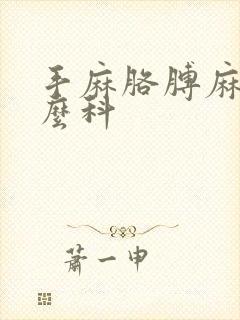 手麻胳膊麻
麼科
萧一申